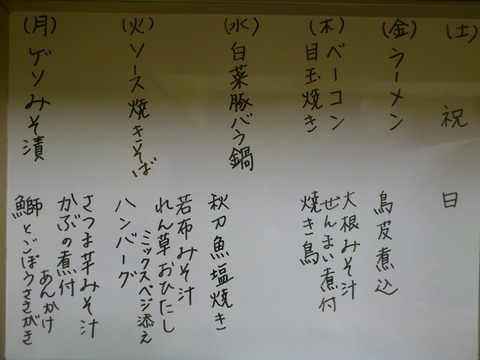 (月)
ゲソみそ漬
さつま芋みそ汁
かぶの煮付
あんかけ
鰤とごぼうささがき
(火)
ソース焼きそば
若布みそ汁
れん草おひたし
ミックスベジ添え
ハンバーグ
(水)
白菜豚バラ鍋
秋刀魚塩焼き
(木)
ベーコン
目玉焼き
大根みそ汁
ぜんまい煮付
焼き鳥
(金)
ラーメン
鳥皮煮込
(土)
祝日